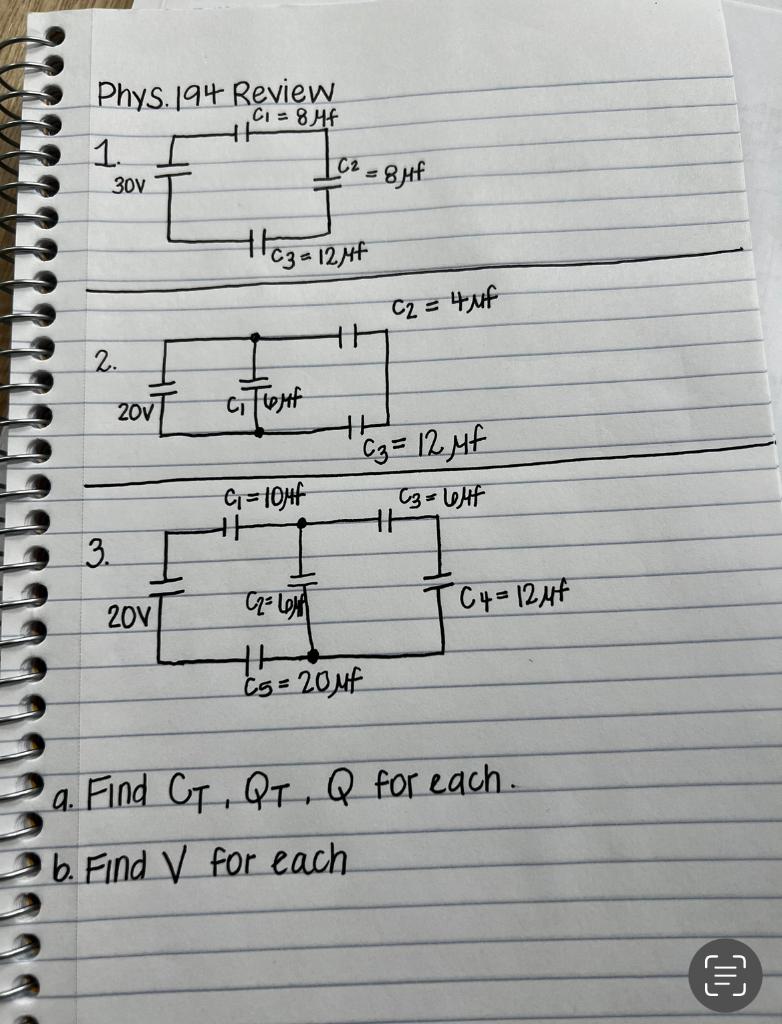 Phys. 194 Review
1.
C1 = 8μf
30V
C2 = 8μf
C3 = 12μf
2.
C2 = 4μf
20V
C1
6μf
C3 = 12μf
3.
C1 = 10μf
C3 = 6μf
20V
C2 = 6μf
C4 = 12μf
C5 = 20μf
a. Find CT, QT, Q for each.
b. Find V for each